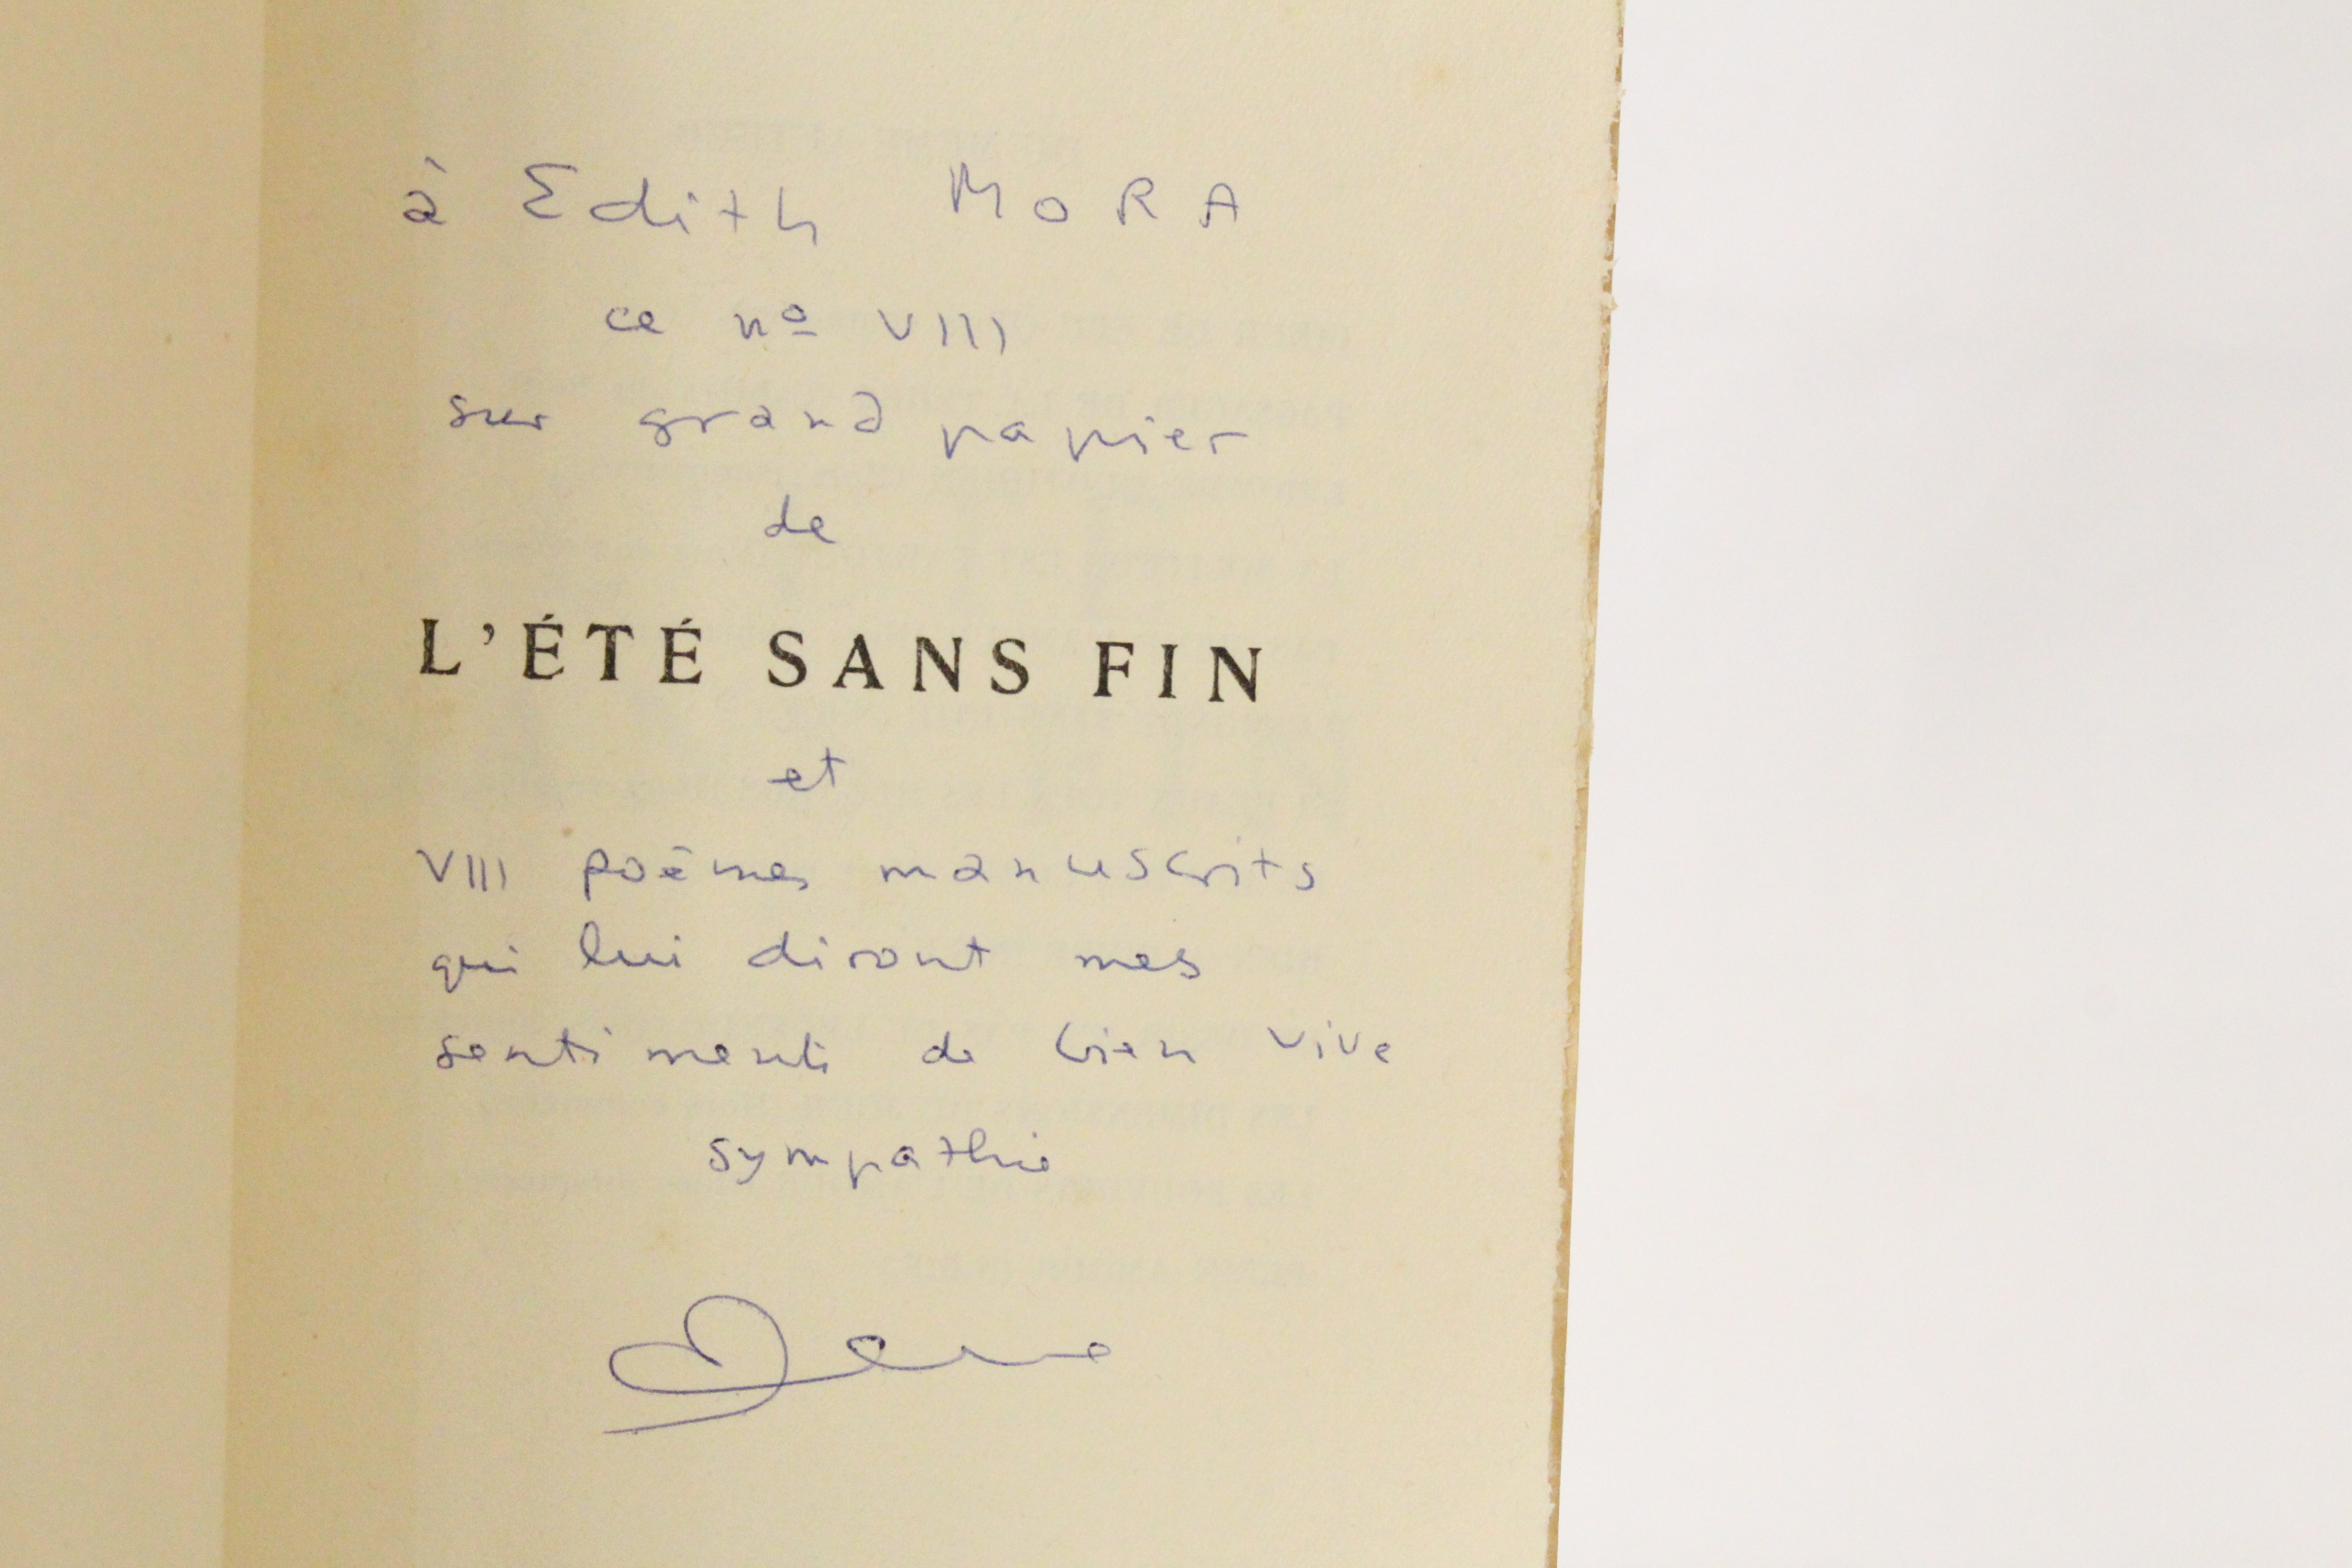 à Edith MORA
ce nº VIII
sur grand papier
de
L'ÉTÉ SANS FIN
et
VIII poèmes manuscrits
qui lui diront mes
sentiments de bien vive
sympathie